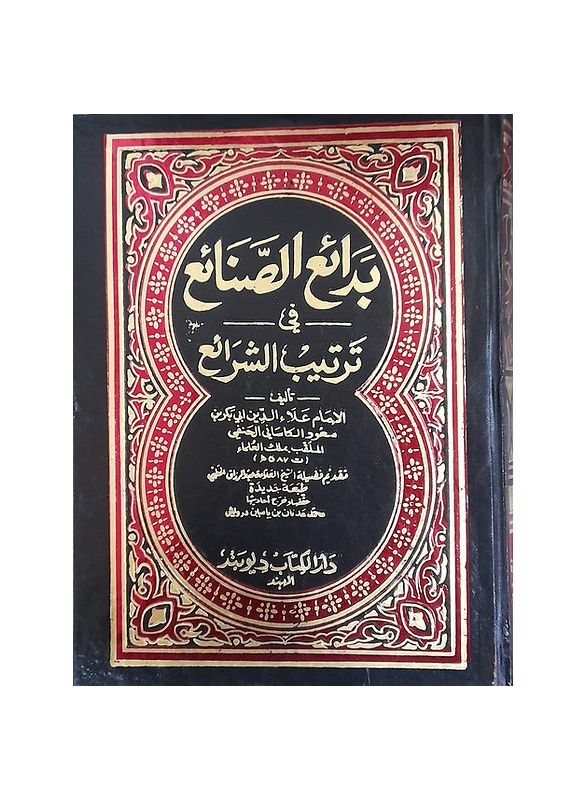 بَدَائِع الصَّنَائِع
فِي
تَرتيب الشرَائِع
تأليف
الإمام علاء الدين أبي بكر بن
مسعود الكاساني الحنفي
الملقب بملك العلماء
(ت ٥٨٧ هـ)
تقديم فضيلة الشيخ العلامة عبد الرزاق الحلبي
طبعة جديدة
محمد عدنان بن ياسين درويش
دار الكتاب ديوبند
الهند